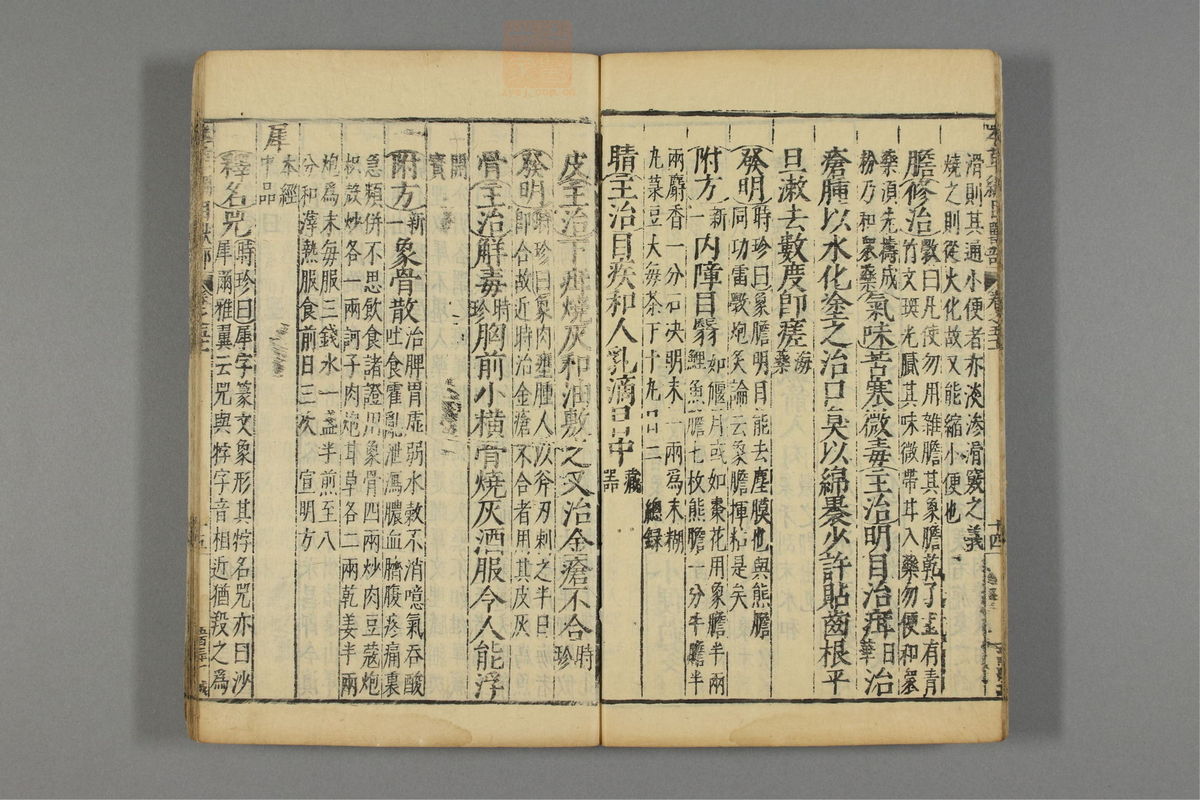 滑則其通小便者亦淡滲滑竅之義
燒之則從火化故又能縮小便也
膽修治斅曰凡使勿用雜膽其象膽乾了上有青
竹文斑光膩其味微帶甘入藥勿便和衆
藥須先擣成
粉乃和衆藥氣味苦寒微毒主治明目治疳日華治
瘡腫以水化塗之治口臭以綿裹少許貼齒根平
旦漱去數度即瘥海藥
發明時珍曰象膽明目能去塵膜也與熊膽
同功雷斅炮炙論云象膽揮粘是矣
附方新一內障目翳如偃月或如棗花用象膽半兩
鯉魚膽七枚熊膽一分牛膽半
兩麝香一分石决明末一兩爲末糊
丸菉豆大每茶下十丸日二 總録
睛主治目疾和人乳滴目中藏器
皮主治下疳燒灰和油敷之又治金瘡不合時珍
發明時珍曰象肉壅腫人以斧刃刺之半日
即合故近時治金瘡不合者用其皮灰
骨主治解毒時珍胸前小橫骨燒灰酒服令人能浮
開寶
附方新一象骨散治脾胃虛弱水穀不消噫氣吞酸
吐食霍亂泄瀉膿血臍腹疼痛裏
急頻併不思飲食諸證用象骨四兩炒肉豆蔻炮
枳殼炒各一兩訶子肉炮甘草各二兩乾姜半兩
炮爲末每服三錢水一盞半煎至八
分和滓熱服食前日三次 宣明方
犀本經中品
釋名兕時珍曰犀字篆文象形其牸名兕亦曰沙
犀爾雅翼云兕與牸字音相近猶羖之爲